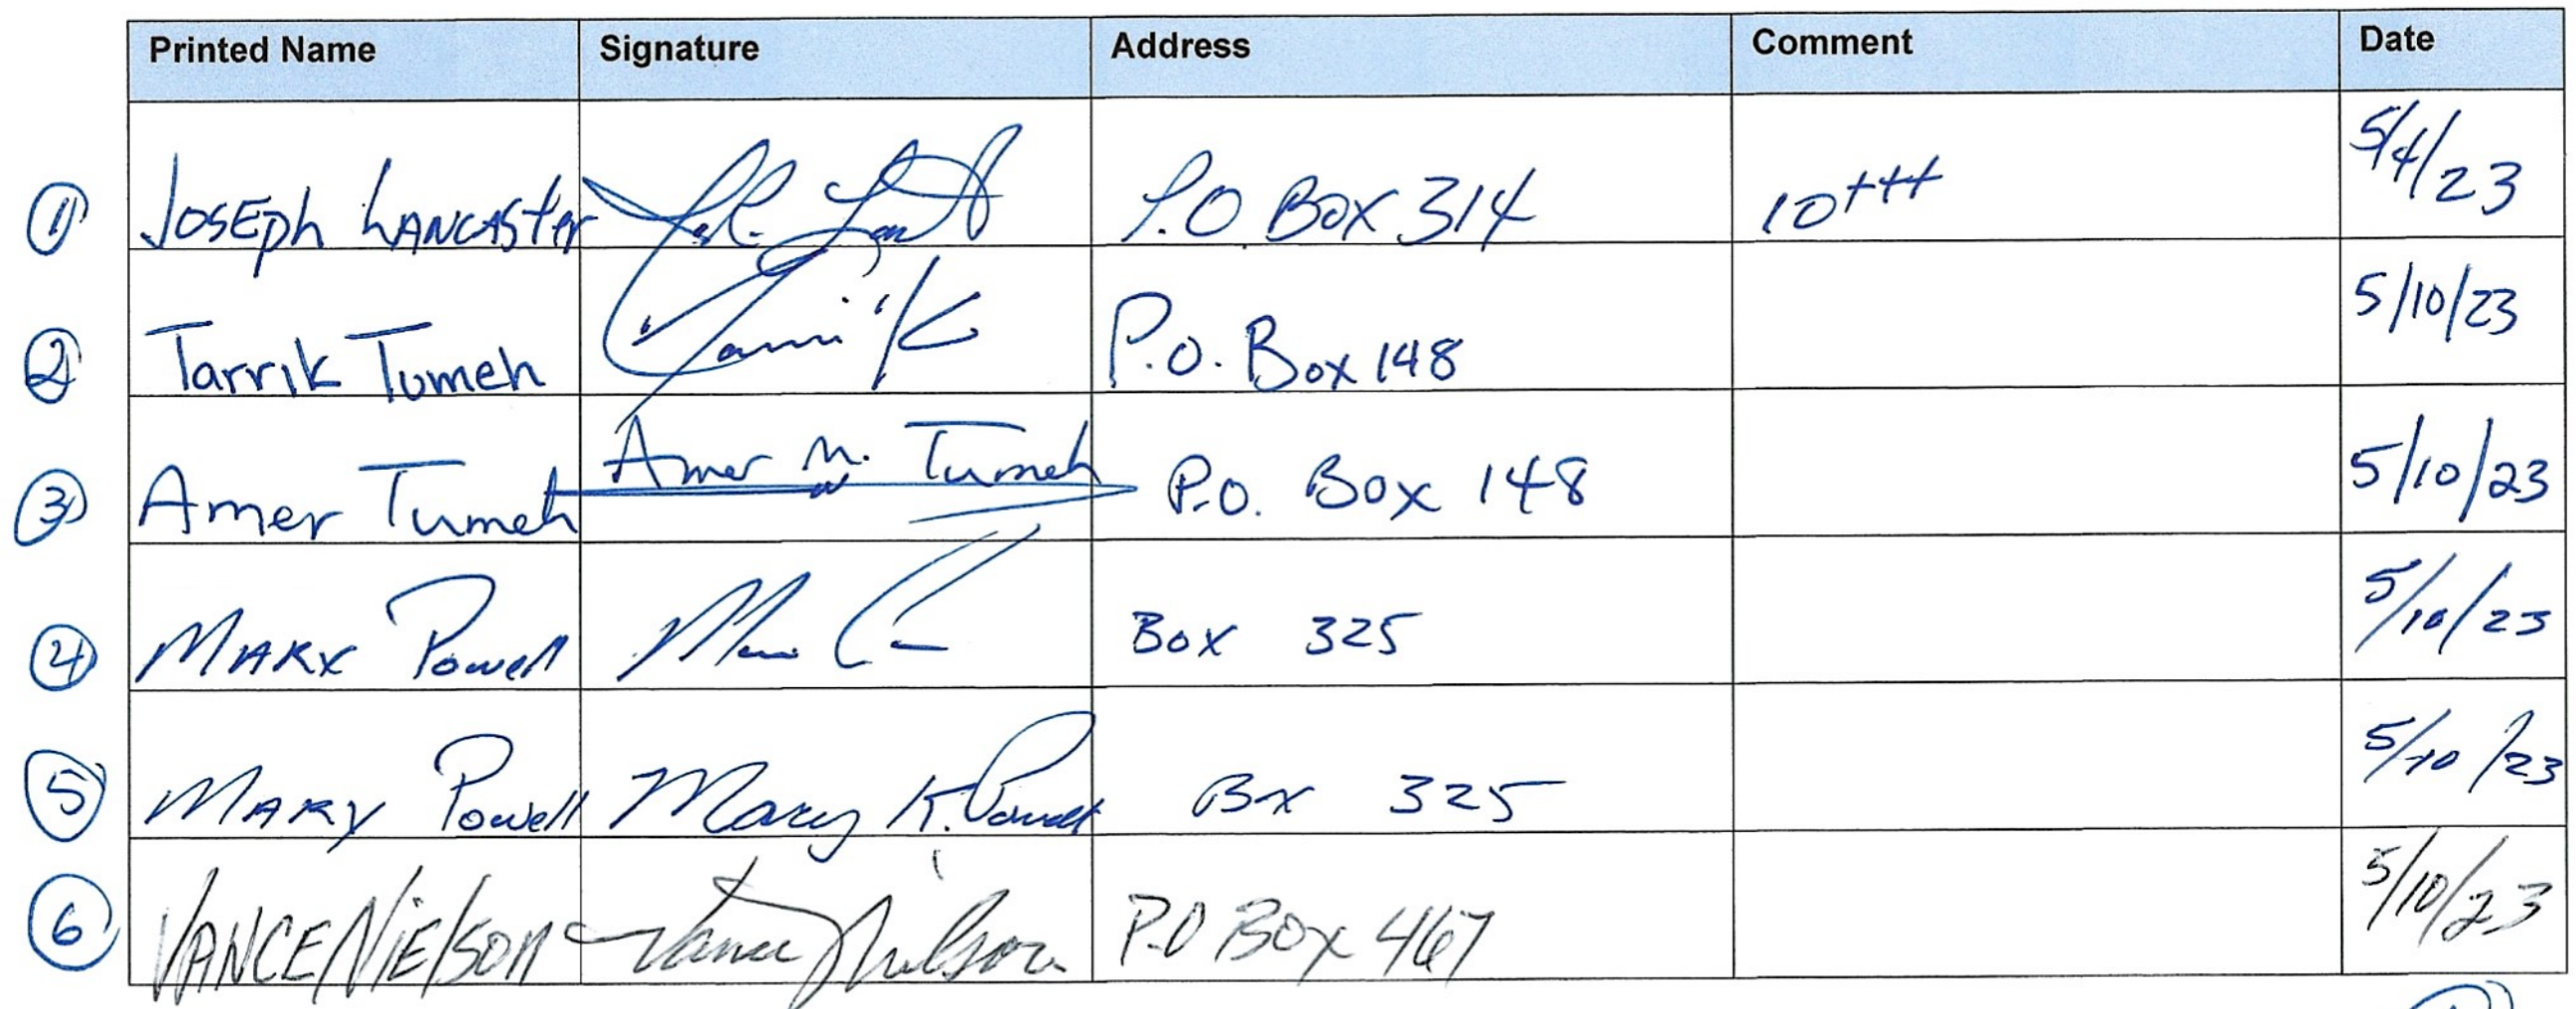 Printed Name Signature Address Comment Date
1 Joseph Lancaster P.O. Box 314 10+++ 5/4/23
2 Tarrik Tumeh P.O. Box 148 5/10/23
3 Amer Tumeh Amer M. Tumeh P.O. Box 148 5/10/23
4 Mark Powell Box 325 5/10/23
5 Mary Powell Mary K. Powell Bx 325 5/10/23
6 Vance Nielson Vance Nielson P.O Box 467 5/10/23